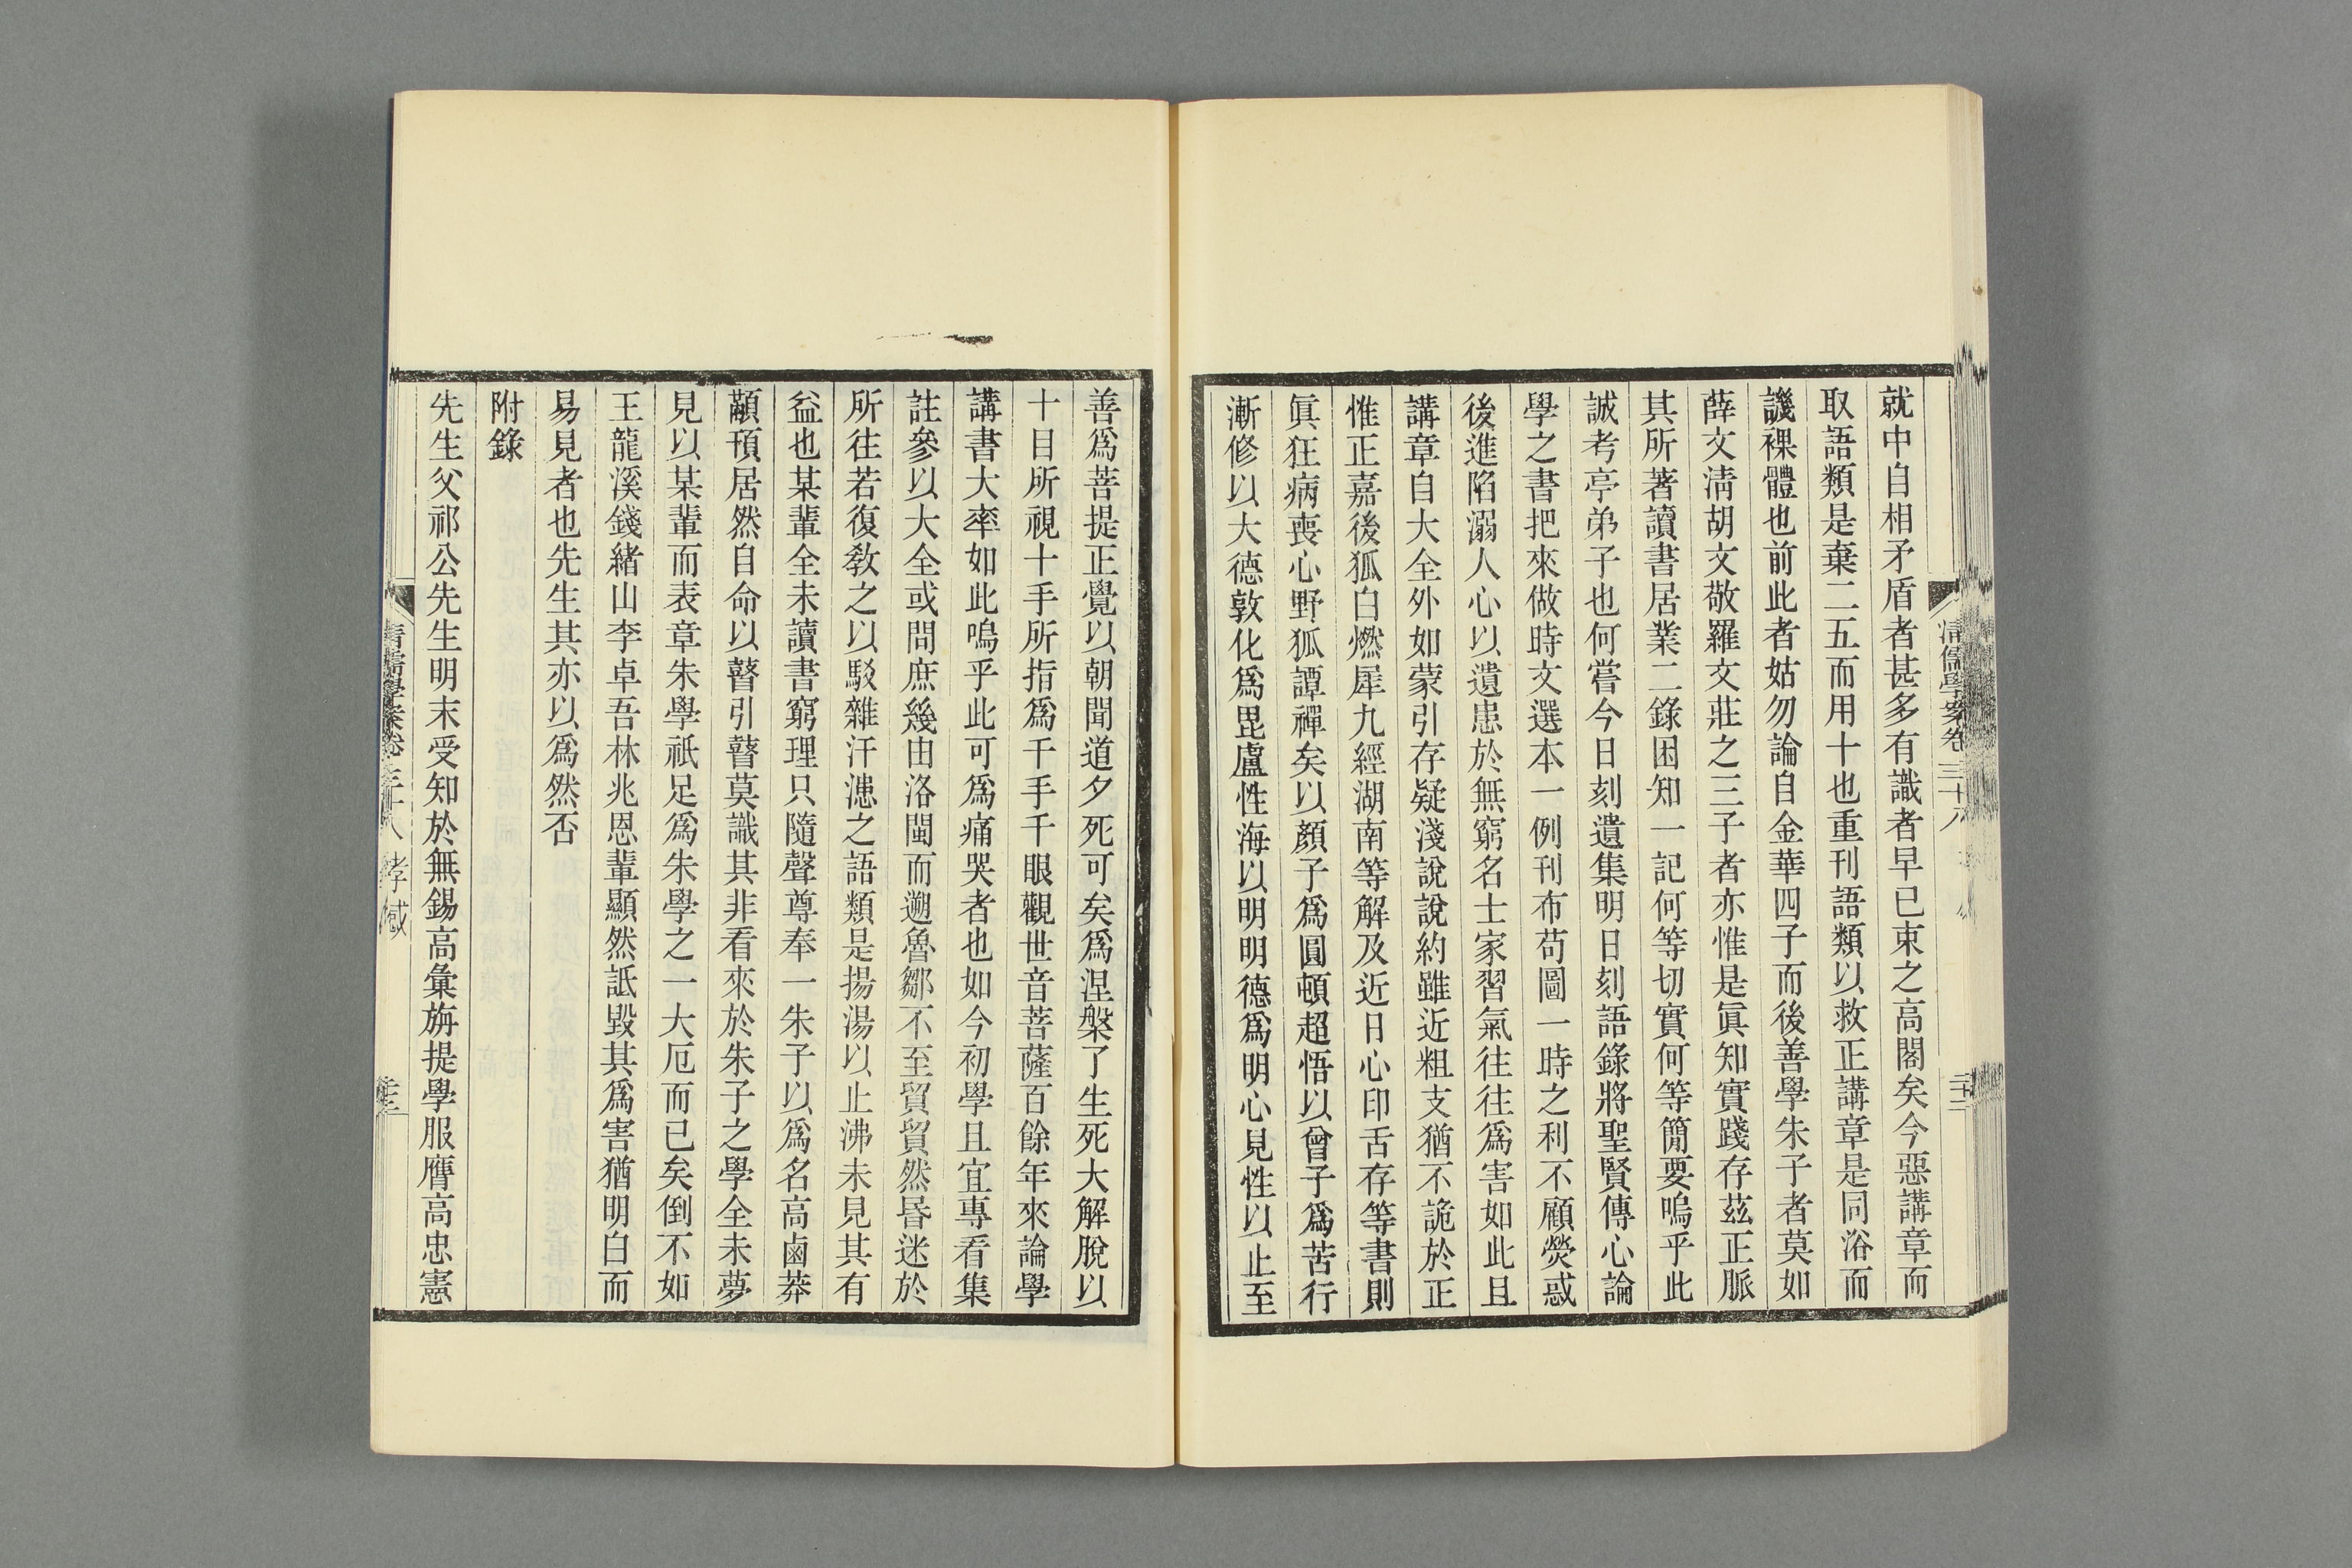 就中自相矛盾者甚多有識者早已束之高閣矣今惡講章而
取語類是棄二五而用十也重刊語類以救正講章是同浴而
譏裸體也前此者姑勿論自金華四子而後善學朱子者莫如
薛文淸胡文敬羅文莊之三子者亦惟是眞知實踐存茲正脈
其所著讀書居業二錄困知一記何等切實何等簡要嗚乎此
誠考亭弟子也何嘗今日刻遺集明日刻語錄將聖賢傳心論
學之書把來做時文選本一例刊布苟圖一時之利不顧熒惑
後進陷溺人心以遺患於無窮名士家習氣往往爲害如此且
講章自大全外如蒙引存疑淺說說約雖近粗支猶不詭於正
惟正嘉後狐白燃犀九經湖南等解及近日心印舌存等書則
眞狂病喪心野狐譚禪矣以顏子爲圓頓超悟以曾子爲苦行
漸修以大德敦化爲毘盧性海以明明德爲明心見性以止至
善爲菩提正覺以朝聞道夕死可矣爲涅槃了生死大解脫以
十目所視十手所指爲千手千眼觀世音菩薩百餘年來論學
講書大率如此嗚乎此可爲痛哭者也如今初學且宜專看集
註參以大全或問庶幾由洛閩而遡魯鄒不至貿貿然昬迷於
所往若復敎之以駁雜汗漶之語類是揚湯以止沸未見其有
益也某輩全未讀書窮理只隨聲尊奉一朱子以爲名高鹵莽
顢頇居然自命以瞽引瞽莫識其非看來於朱子之學全未夢
見以某輩而表章朱學祇足爲朱學之一大厄而已矣倒不如
王龍溪錢緒山李卓吾林兆恩輩顯然詆毀其爲害猶明白而
易見者也先生其亦以爲然否
附錄
先生父祁公先生明末受知於無錫高彙旃提學服膺高忠憲
淸儒學案卷三十八